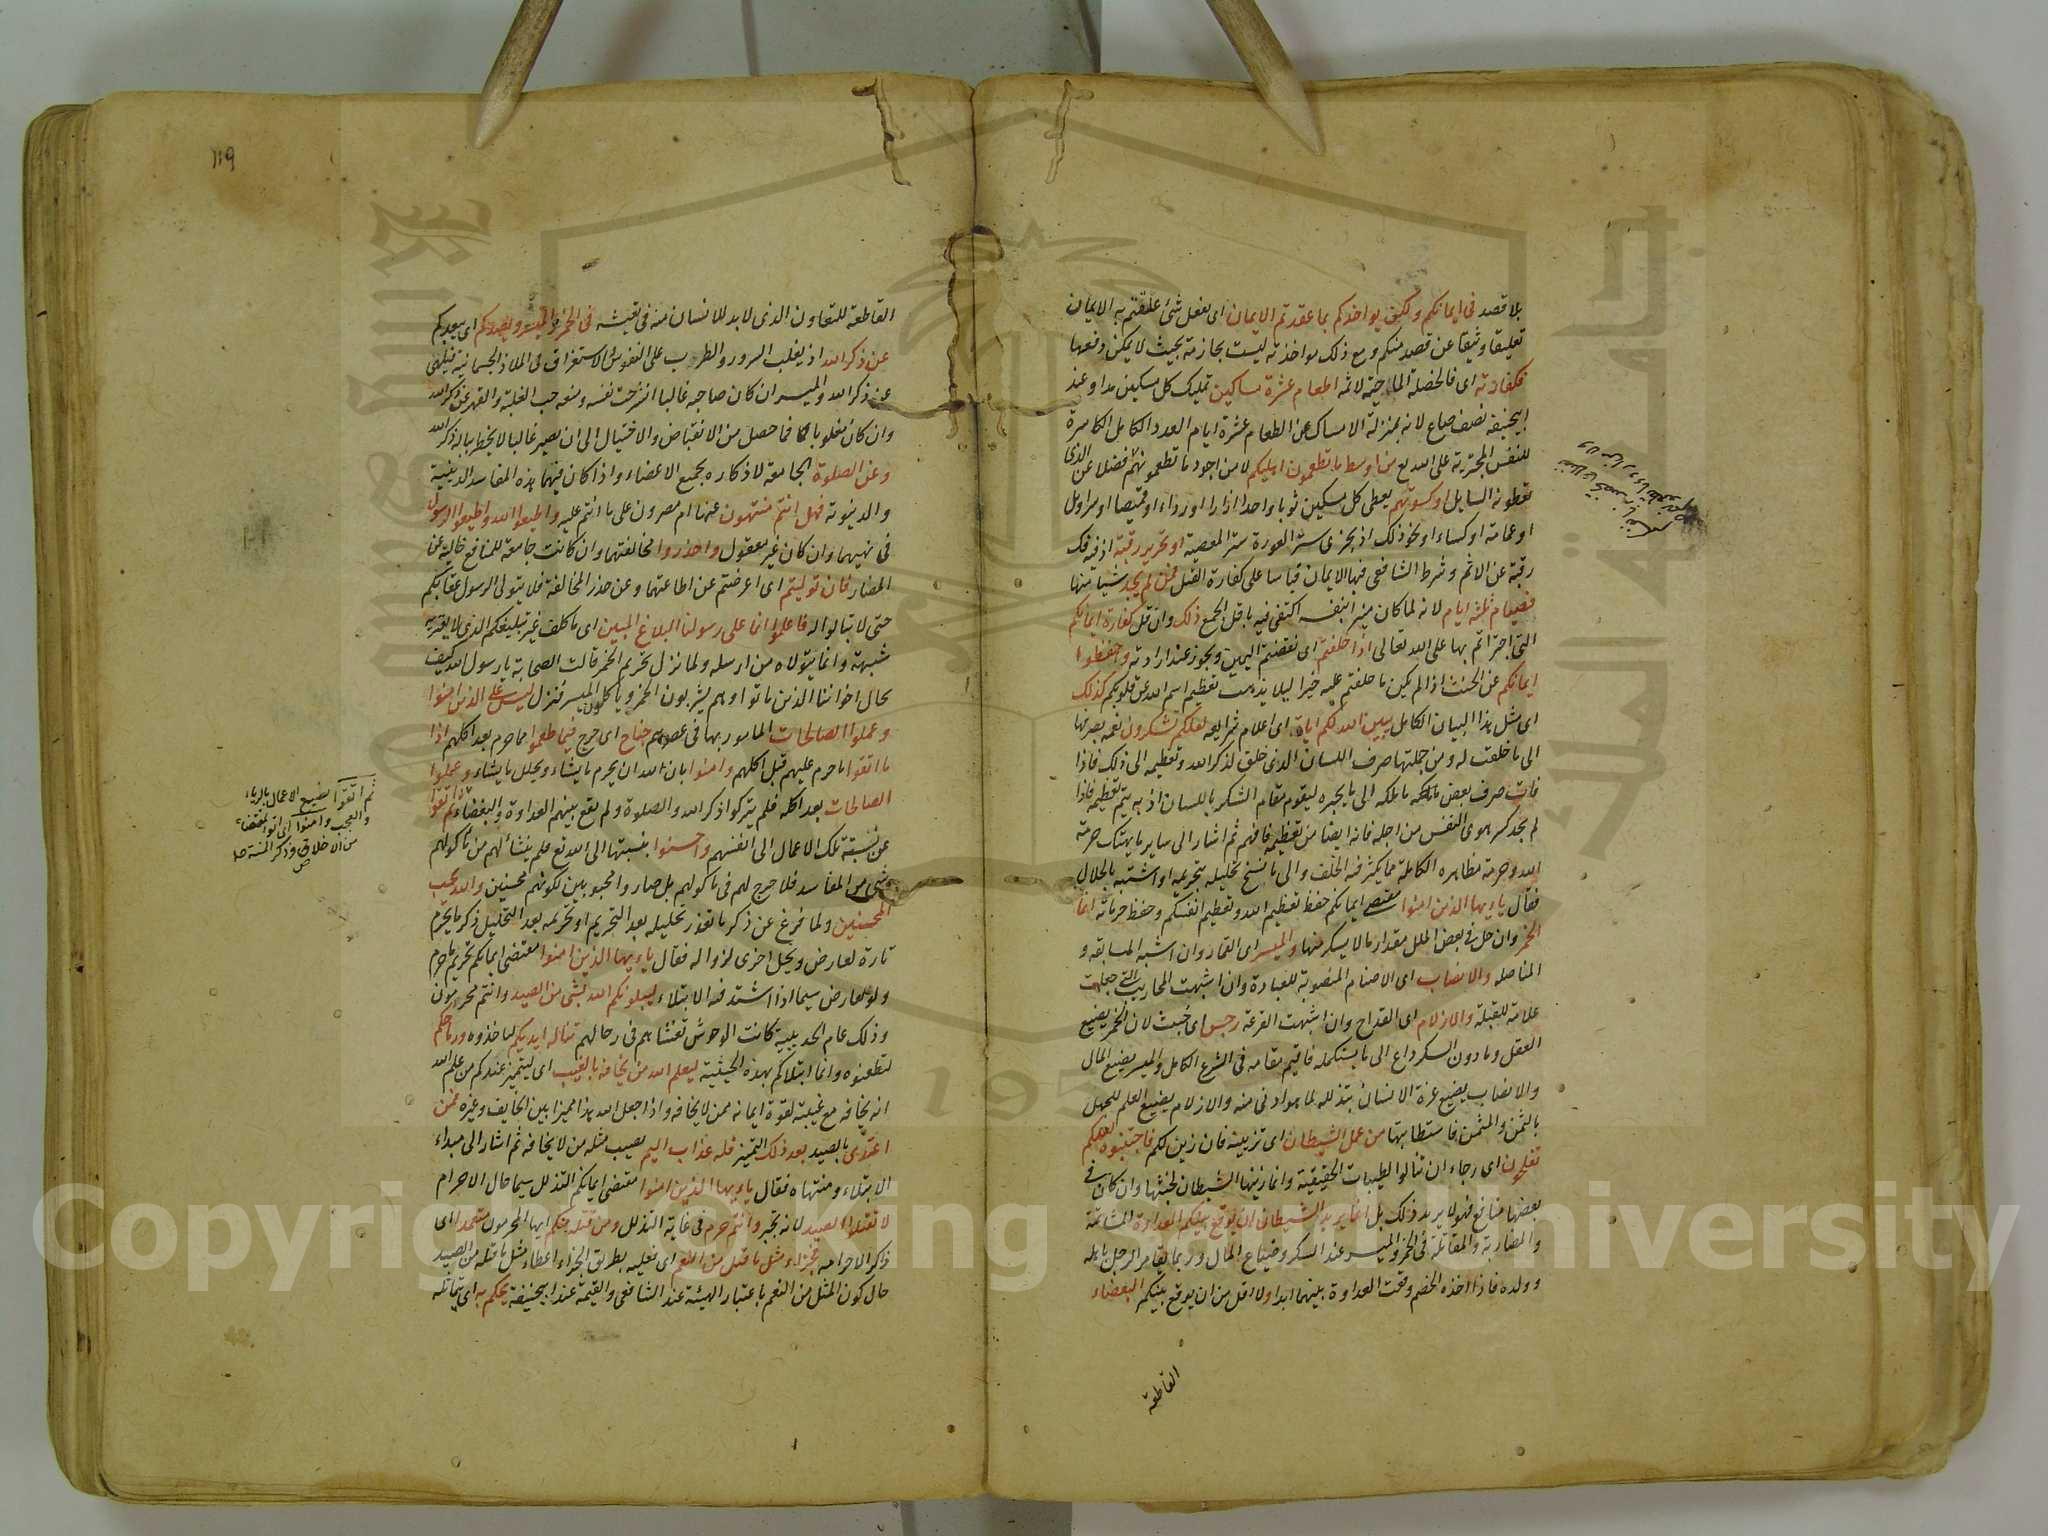 بلا قصد فى ايمانكم ولكن يواخذكم بما عقدتم الايمان اى بفعل شئ علقتم به الايمان
تعليقا وثيقا عن قصد منكم ومع ذلك مواخذته ليست بجازمة بحيث لا يمكن دفعها
فكفارته اى فالخصلة الماحية لاثمه اطعام عشرة مساكين تمليك كل مسكين مدا وعند
ابيحنيفة نصف صاع لانه بمنزلة الامساك عن الطعام عشرة ايام العدد الكامل الكاسرة
للنفس المجترية على الله تع من اوسط ما تطعمون اهليكم لا من اجود ما تطعمونهم فضلا عن الذى
تعطونه السايل او كسوتهم يعطى كل مسكين ثوبا واحدا ازارا او رداء او قميصا او سراويل
او عمامة او كساء او نحو ذلك اذ يجزى ستر العورة ستر المعصية او تحرير رقبة اذ فيه فك
رقبة عن الاثم وشرط الشافعى فيها الايمان قياسا على كفارة القتل فمن لم يجد شيئا منها
فصيام ثلثة ايام لانه لما كان ميز ابنفسه اكتفى فيه باقل الجمع ذلك وان قل كفارة ايمانكم
التى اجتراتم بها على الله تعالى اذا حلفتم اى نقضتم اليمين ويجوز عند ارادته واحفظوا
ايمانكم عن الحنث اذا لم يكن ما حلفتم عليه خيرا ليلا يذهب تعظيم اسم الله عن قلوبكم كذلك
اى مثل هذا البيان الكامل يبين الله لكم اياته اى اعلام شرايعه لعلكم تشكرون نعمه بصرفها
الى ما خلقت له ومن جملتها صرف اللسان الذى خلق لذكر الله وتعظيمه الى ذلك فاذا
فات صرف بعض ما يملكه الى ما يجبره ليقوم مقام الشكر باللسان اذ به يتم تعظيمه فاذا
لم يجد كسر هوى النفس من اجله فانه ايضا من تعظيمه فافهم ثم اشار الى ساير ما يهتك حرمة
الله وحرمة مظاهره الكاملة مما يكثر فيه الحلف والى ما نسخ تحليله بتحريمه او اشتبه بالحلال
فقال يا ايها الذين امنوا مقتضى ايمانكم حفظ تعظيم الله وتعظيم انفسكم وحفظ حرماته انما
الخمر وان حل فى بعض الملل مقدار ما لا يسكر منها والميسر اى القمار وان اشبه المسابقة و
المناضلة والانصاب اى الاصنام المنصوبة للعبادة وان اشبهت المحاريب التى جعلت
علامة للقبلة والازلام اى القداح وان اشبهت القرعة رجس اى خبث لان الخمر يضيع
العقل وما دون السكر داع الى ما يستكمله فاقيم مقامه فى الشرع الكامل والميسر يضيع المال
والانصاب يضيع عزة الانسان بتذلله لما هو ادنى منه والازلام يضيع العلم للجهل
بالثمن والمثمن فاستطابتها من عمل الشيطان اى تزيينه فان زين لكم فاجتنبوه لعلكم
تفلحون اى رجاء ان تنالوا الطيبات الحقيقية وانما زينها الشيطان لخبثها وان كان فى
بعضها منافع فهو لا يريد ذلك بل انما يريد الشيطان ان يوقع بينكم العداوة المشاتمة
والمضاربة والمقاتلة فى الخمر والميسر عند السكر وضياع المال وربما يقامر الرجل باهله
وولده فاذا اخذه الخصم وقعت العداوة بينهما ابدا ولا اقل من ان يوقع بينكم البغضاء
القاطعة
119
القاطعة للتعاون الذى لا بد للانسان منه فى تعيشه فى الخمر والميسر ويصدكم اى يبعدكم
عن ذكر الله اذ يغلب السرور والطرب على النفوس والاستغراق فى الملاذ الجسمانية فيلهى
عن ذكر الله والميسر ان كان صاحبه غالبا انشرحت نفسه ومنعه حب الغلبة والقهر عن ذكر الله
وان كان مغلوبا فما حصل من الانقباض والاحتيال الى ان يصير غالبا لا يخطر بباله ذكر الله
وعن الصلوة الجامعة لاذكاره بجميع الاعضاء واذا كان فيهما هذه المفاسد الدينية
والدنيوية فهل انتم منتهون عنها ام مصرون على ما انتم عليه واطيعوا الله واطيعوا الرسول
فى نهيهما وان كان غير معقول واحذروا مخالفتهما وان كانت جامعة للمنافع خالية عن
المضار فان توليتم اى اعرضتم عن اطاعتهما وعن حذر المخالفة فلا يتولى الرسول عقابكم
حتى لا تبالوا له فاعلموا انما على رسولنا البلاغ المبين اى ما كلف غير تبليغكم الذى لا يعتريه
شبهة وانما يتولاه من ارسله ولما نزل تحريم الخمر قالت الصحابة يا رسول الله كيف
بحال اخواننا الذين ماتوا وهم يشربون الخمر وياكلون الميسر فنزل ليس على الذين امنوا
وعملوا الصالحات المامور بها فى عصرهم جناح اى حرج فيما طعموا مما حرم بعد اكلهم اذا
ما اتقوا ما حرم عليهم قبل اكلهم وامنوا بان الله ان يحرم ما يشاء ويحلل ما يشاء وعملوا
الصالحات بعد اكله فلم يتركوا ذكر الله والصلوة ولم يقع بينهم العداوة والبغضاء ثم اتقوا
عن نسبة تلك الاعمال الى انفسهم واحسنوا بنسبتها الى الله تع فلم ينشأ لهم من ماكولهم
شئ من المفاسد فلا حرج لهم فى ماكولهم بل صاروا محبوبين لكونهم محسنين والله يحب
المحسنين ولما فرغ عن ذكر ما تقرر تحليله بعد التحريم او تحريمه بعد التحليل ذكر ما يحرم
تارة لعارض ويحل اخرى لزواله فقال يا ايها الذين امنوا مقتضى ايمانكم تحريم ما حرم
ولو لعارض سيما اذا اشتد فيه الابتلاء ليبلونكم الله بشئ من الصيد وانتم محرمون
وذلك عام الحديبية كانت الوحوش تغشاهم فى رحالهم تناله ايديكم لتاخذوه ورماحكم
لتطعنوه وانما ابتلاكم بهذه الحيثية ليعلم الله من يخافه بالغيب اى ليتميز عندكم من علم الله
انه يخافه مع غيبته لقوة ايمانه ممن لا يخافه واذا جعل الله هذا مميزا بين الخايف وغيره فمن
اعتدى بالصيد بعد ذلك التميز فله عذاب اليم يصيب مثله من لا يخافه ثم اشار الى مبداء
الابتلاء ومنتهاه فقال يا ايها الذين امنوا مقتضى ايمانكم التذلل سيما حال الاحرام
لا تقتلوا الصيد لانه تجبر وانتم حرم فى غاية التذلل ومن قتله منكم ايها المحرمون متعمدا اى
ذاكرا لاحرامه فجزاء مثل ما قتل من النعم اى فعليه بطريق الجزاء اعطاء مثل ما قتله من الصيد
حال كون المثل من النعم باعتبار الهيئة عند الشافعى والقيمة عند ابيحنيفة يحكم به اى بمماثلته
ثم اتقوا تضيع الاعمال بالرياء
والعجب وامنوا
من الاخلاق وذكر المنة صل
Copyright © King Saud University
جامعة الملك سعود
195